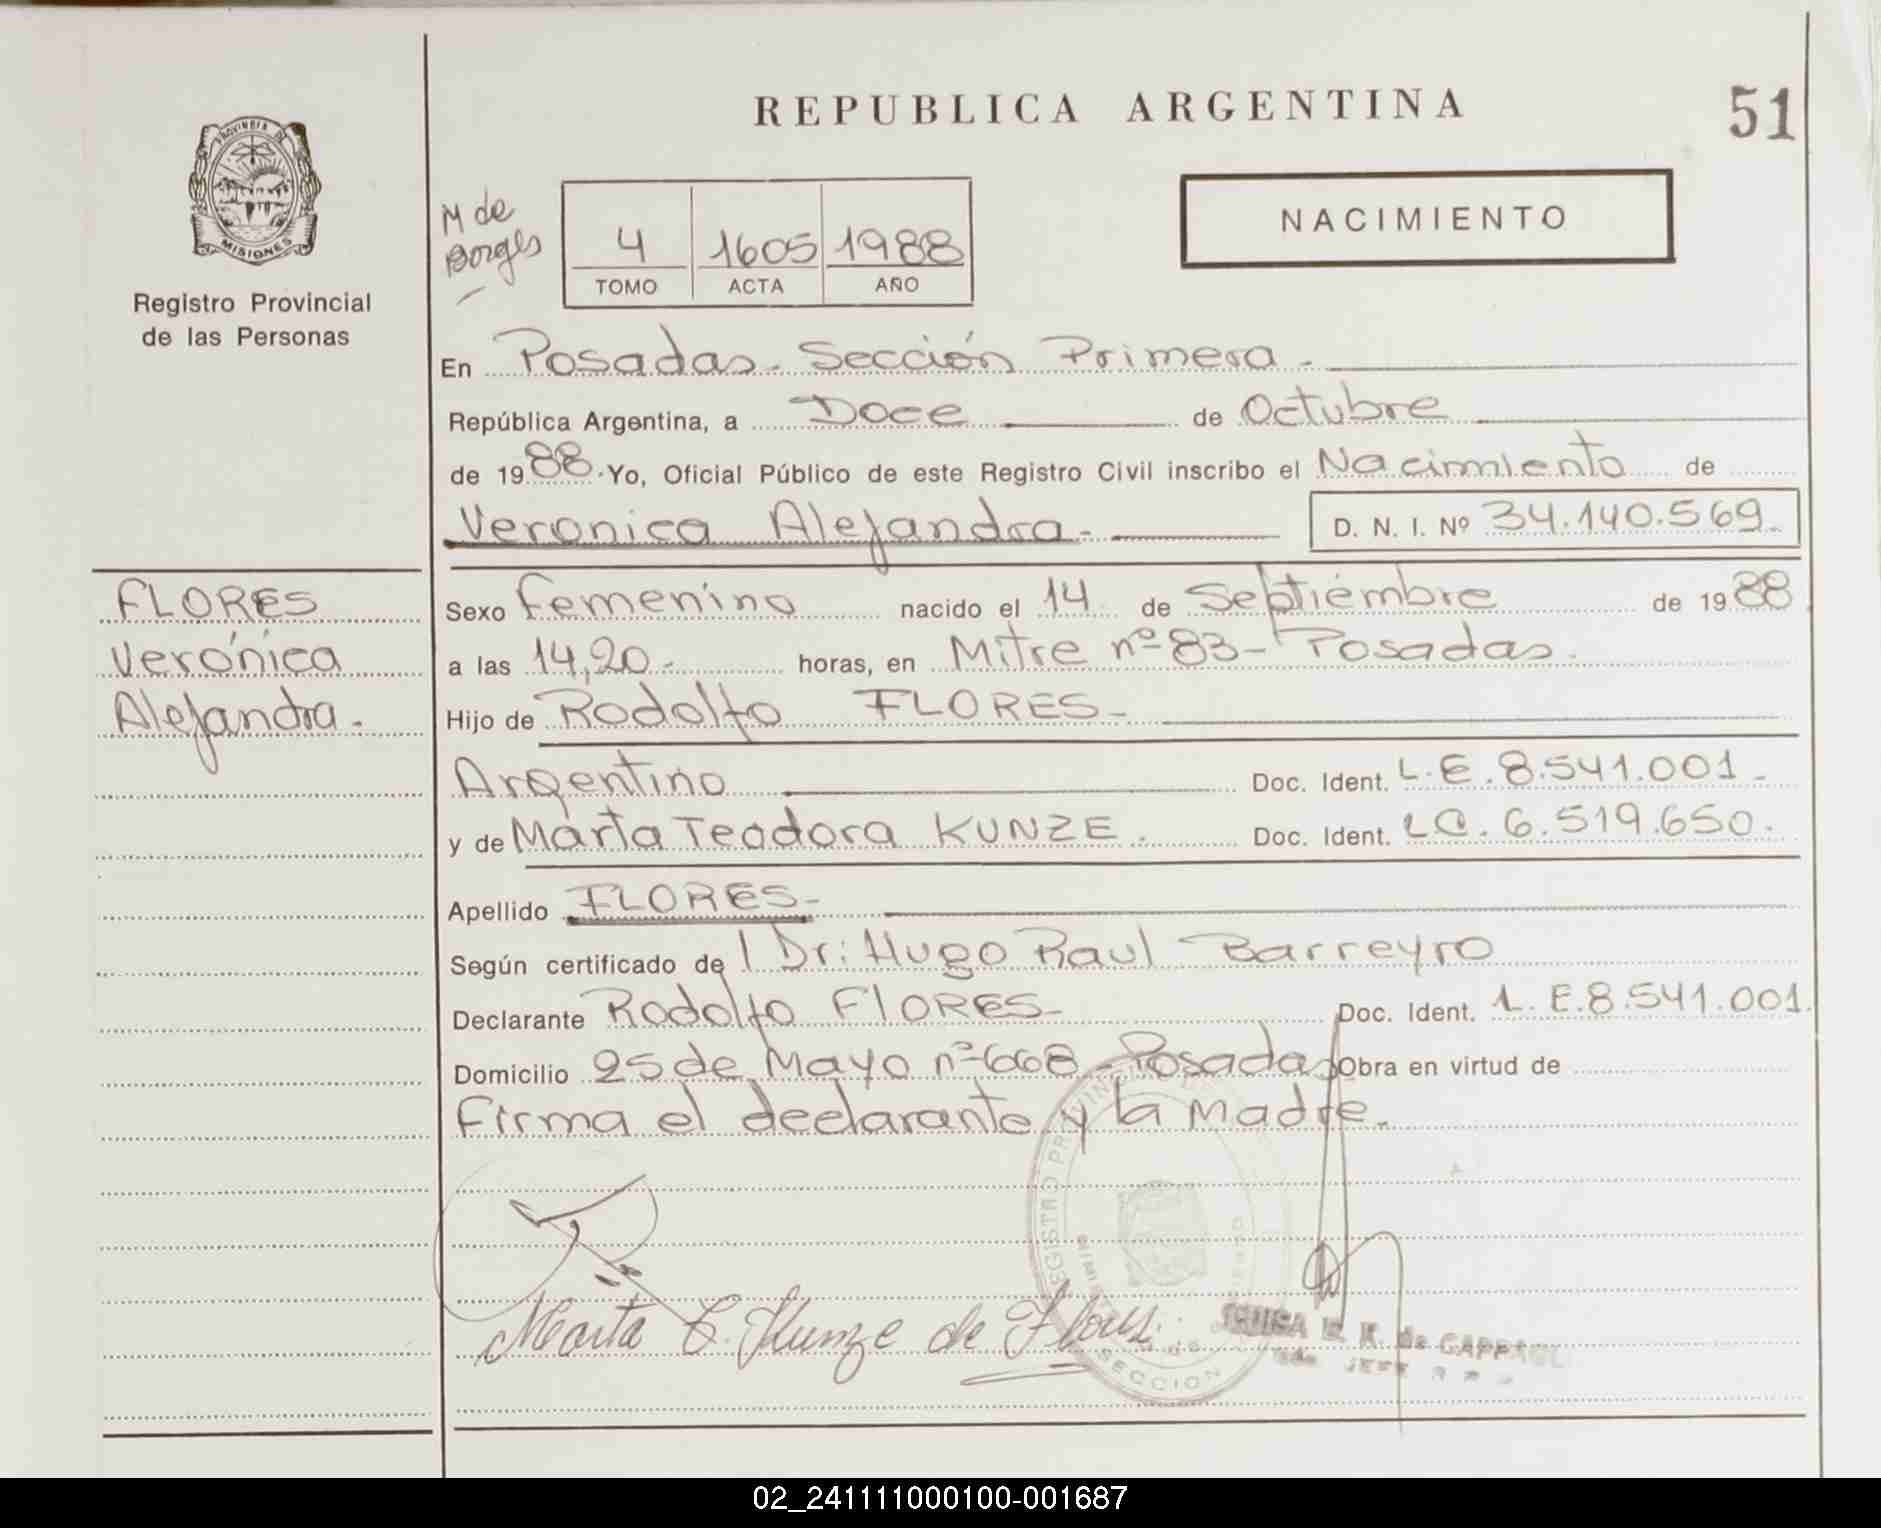 REPUBLICA ARGENTINA
51
PROVINCIA DE
MISIONES
Registro Provincial
de las Personas
M de
Borges
4 1605 1988
TOMO ACTA AÑO
NACIMIENTO
En Posadas. Sección Primera.
República Argentina, a Doce de Octubre
de 1988. Yo, Oficial Público de este Registro Civil inscribo el Nacimiento de
Veronica Alejandra.- D. N. I. Nº 34.140.569.
FLORES
Verónica
Alejandra.
Sexo Femenino nacido el 14 de Septiembre de 1988
a las 14,20.- horas, en Mitre nº 83 - Posadas.
Hijo de Rodolfo FLORES-
Argentino Doc. Ident. L.E. 8.541.001.-
y de Marta Teodora KUNZE. Doc. Ident. LC. 6.519.650.
Apellido FLORES-
Según certificado del Dr: Hugo Raul Barreyro
Declarante Rodolfo FLORES- Doc. Ident. L.E. 8.541.001.
Domicilio 25 de Mayo nº 668 - Posadas Obra en virtud de
Firma el declarante y la madre.
Marta T. Kunze de Flores
SECCION
02_241111000100-001687